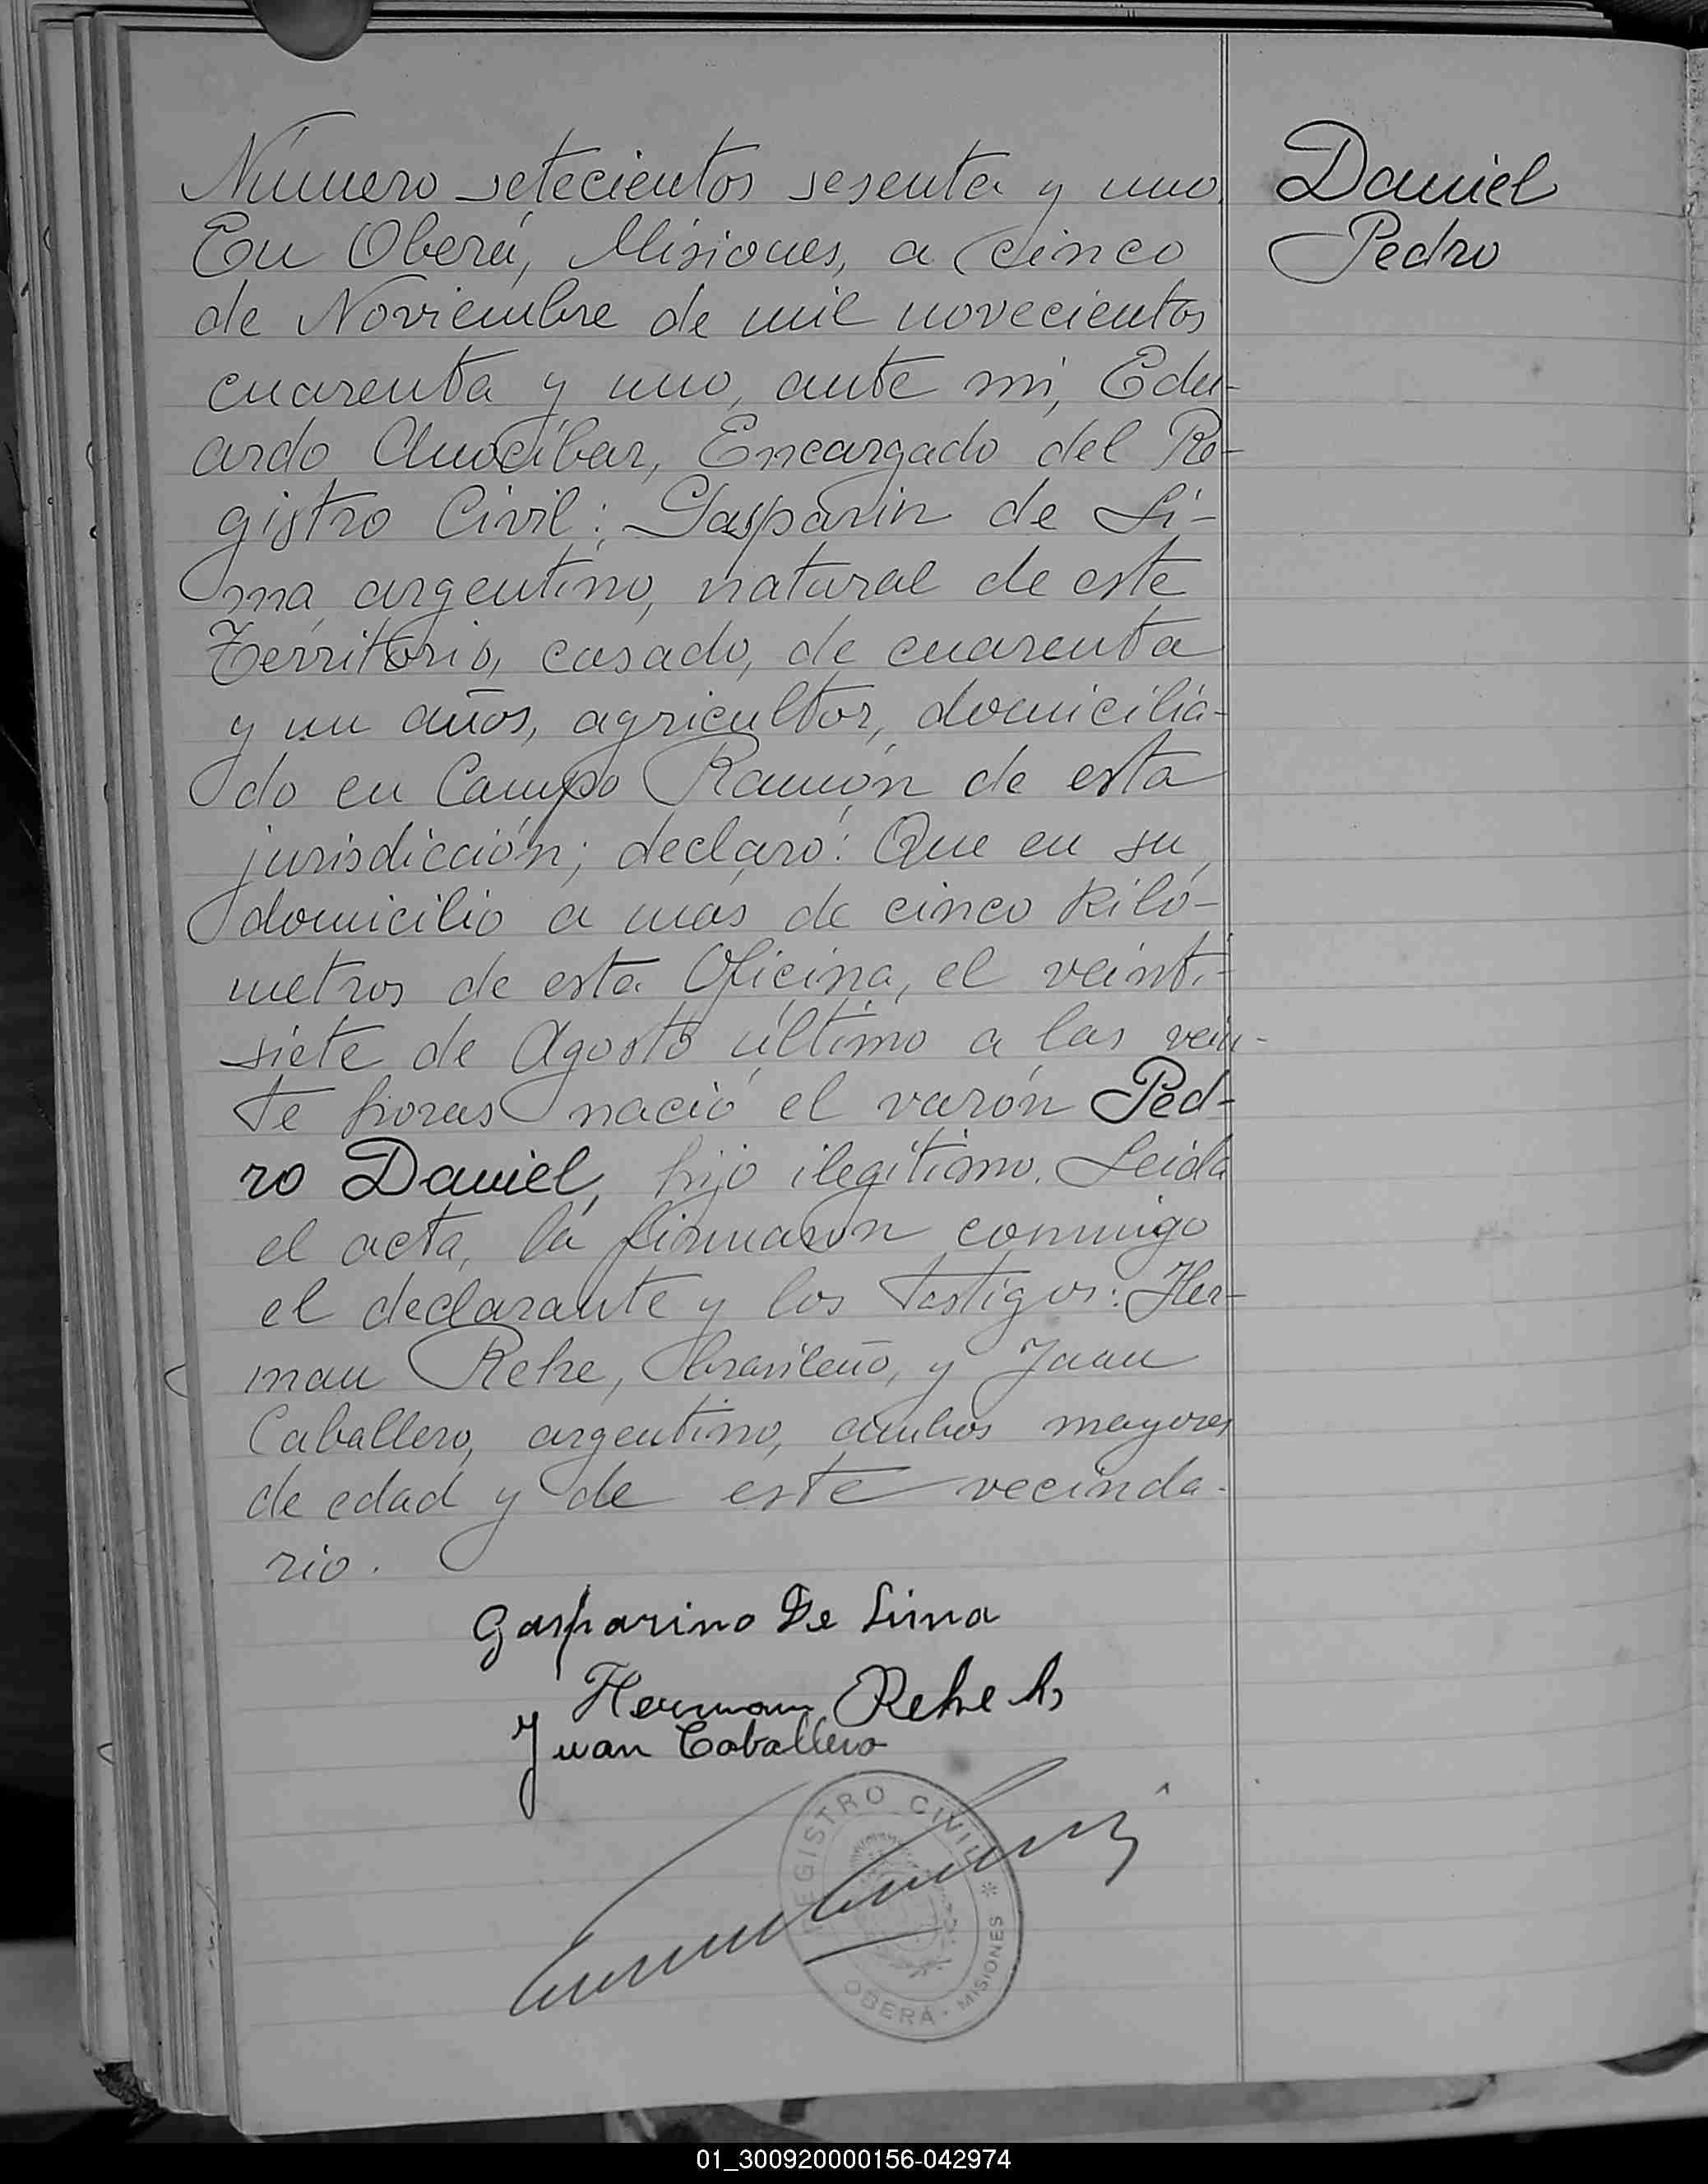 Número setecientos sesenta y uno.
En Oberá, Misiones, a cinco
de Noviembre de mil novecientos
cuarenta y uno, ante mi, Edu-
ardo Anocibar, Encargado del Re-
gistro Civil: Gasparin de Li-
ma argentino, natural de este
Territorio, casado, de cuarenta
y un años, agricultor, domicilia-
do en Campo Ramón de esta
jurisdicción; declaró: Que en su
domicilio a mas de cinco kiló-
metros de esta Oficina, el veinti-
siete de Agosto último a las vein-
te horas nació el varón Ped-
ro Daniel, hijo ilegitimo. Leida
el acta, la firmaron conmigo
el declarante y los testigos: Her-
man Rehe, brasileño, y Juan
Caballero, argentino, ambos mayores
de edad y de este vecinda-
rio.
Daniel
Pedro
Gasparino De Lima
Herman Rehe h,
Juan Caballero
REGISTRO CIVIL * OBERÁ - MISIONES
01_300920000156-042974